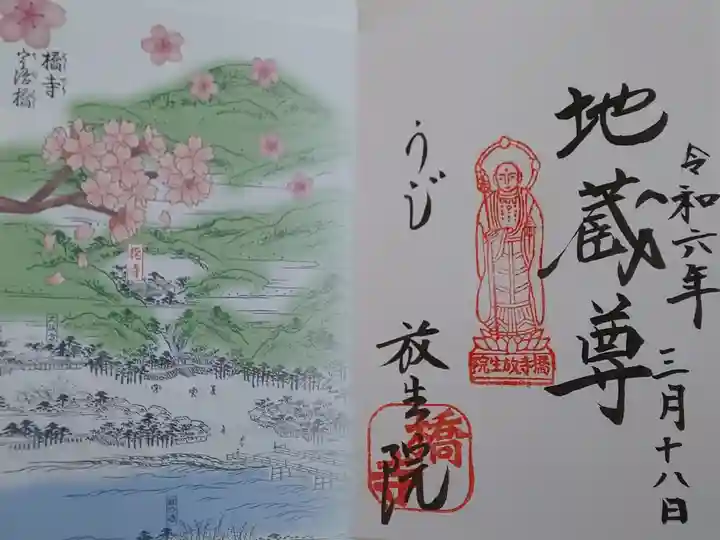 橋寺
宇治橋
橋寺
令和六年
三月十八日
地蔵尊
うじ
放生院
橋寺放生院
橋寺